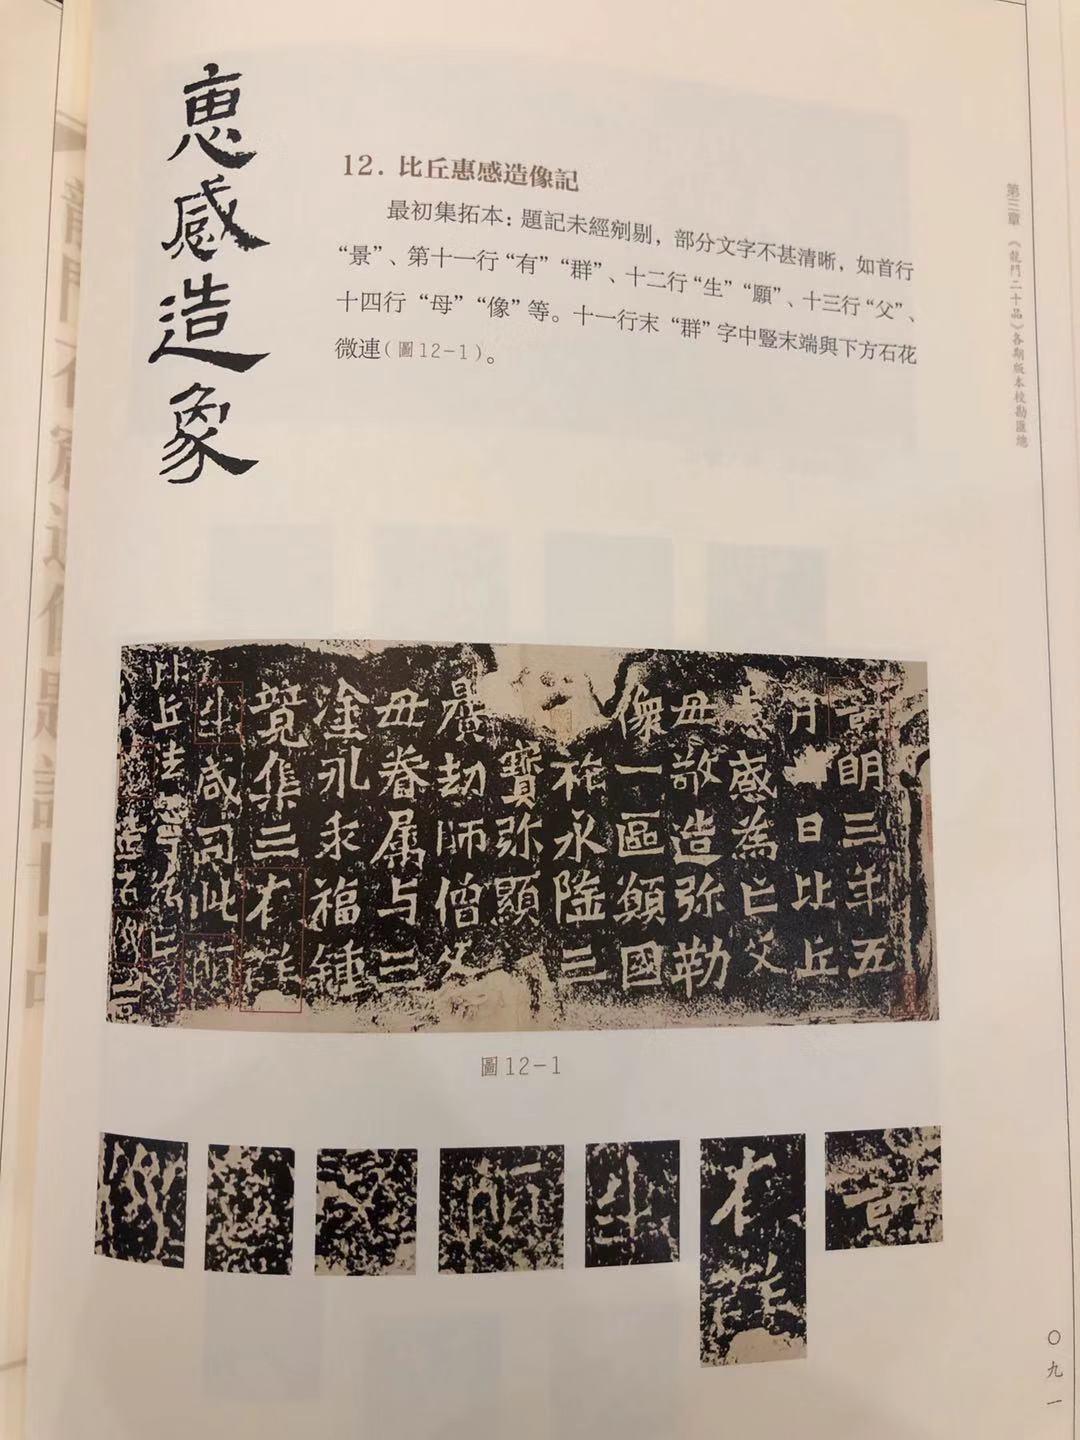 惠感造象
12. 比丘惠感造像記
最初集拓本：題記未經剜剔，部分文字不甚清晰，如首行
“景”、第十一行“有”“群”、十二行“生”“願”、十三行“父”、
十四行“母”“像”等。十一行末“群”字中豎末端與下方石花
微連（圖12-1）。
第三章 《龍門二十品》各期版本校勘匯總
景明三年五
月日比丘
惠感為亡父
母敬造弥勒
像一區願國
祚永隆三
寶弥顯
曠劫師僧父
母眷属与三
塗永乖福鍾
競集三有群
生咸同此願
比丘法寧為亡父
母造石像一
圖12-1
有群
生
〇九一